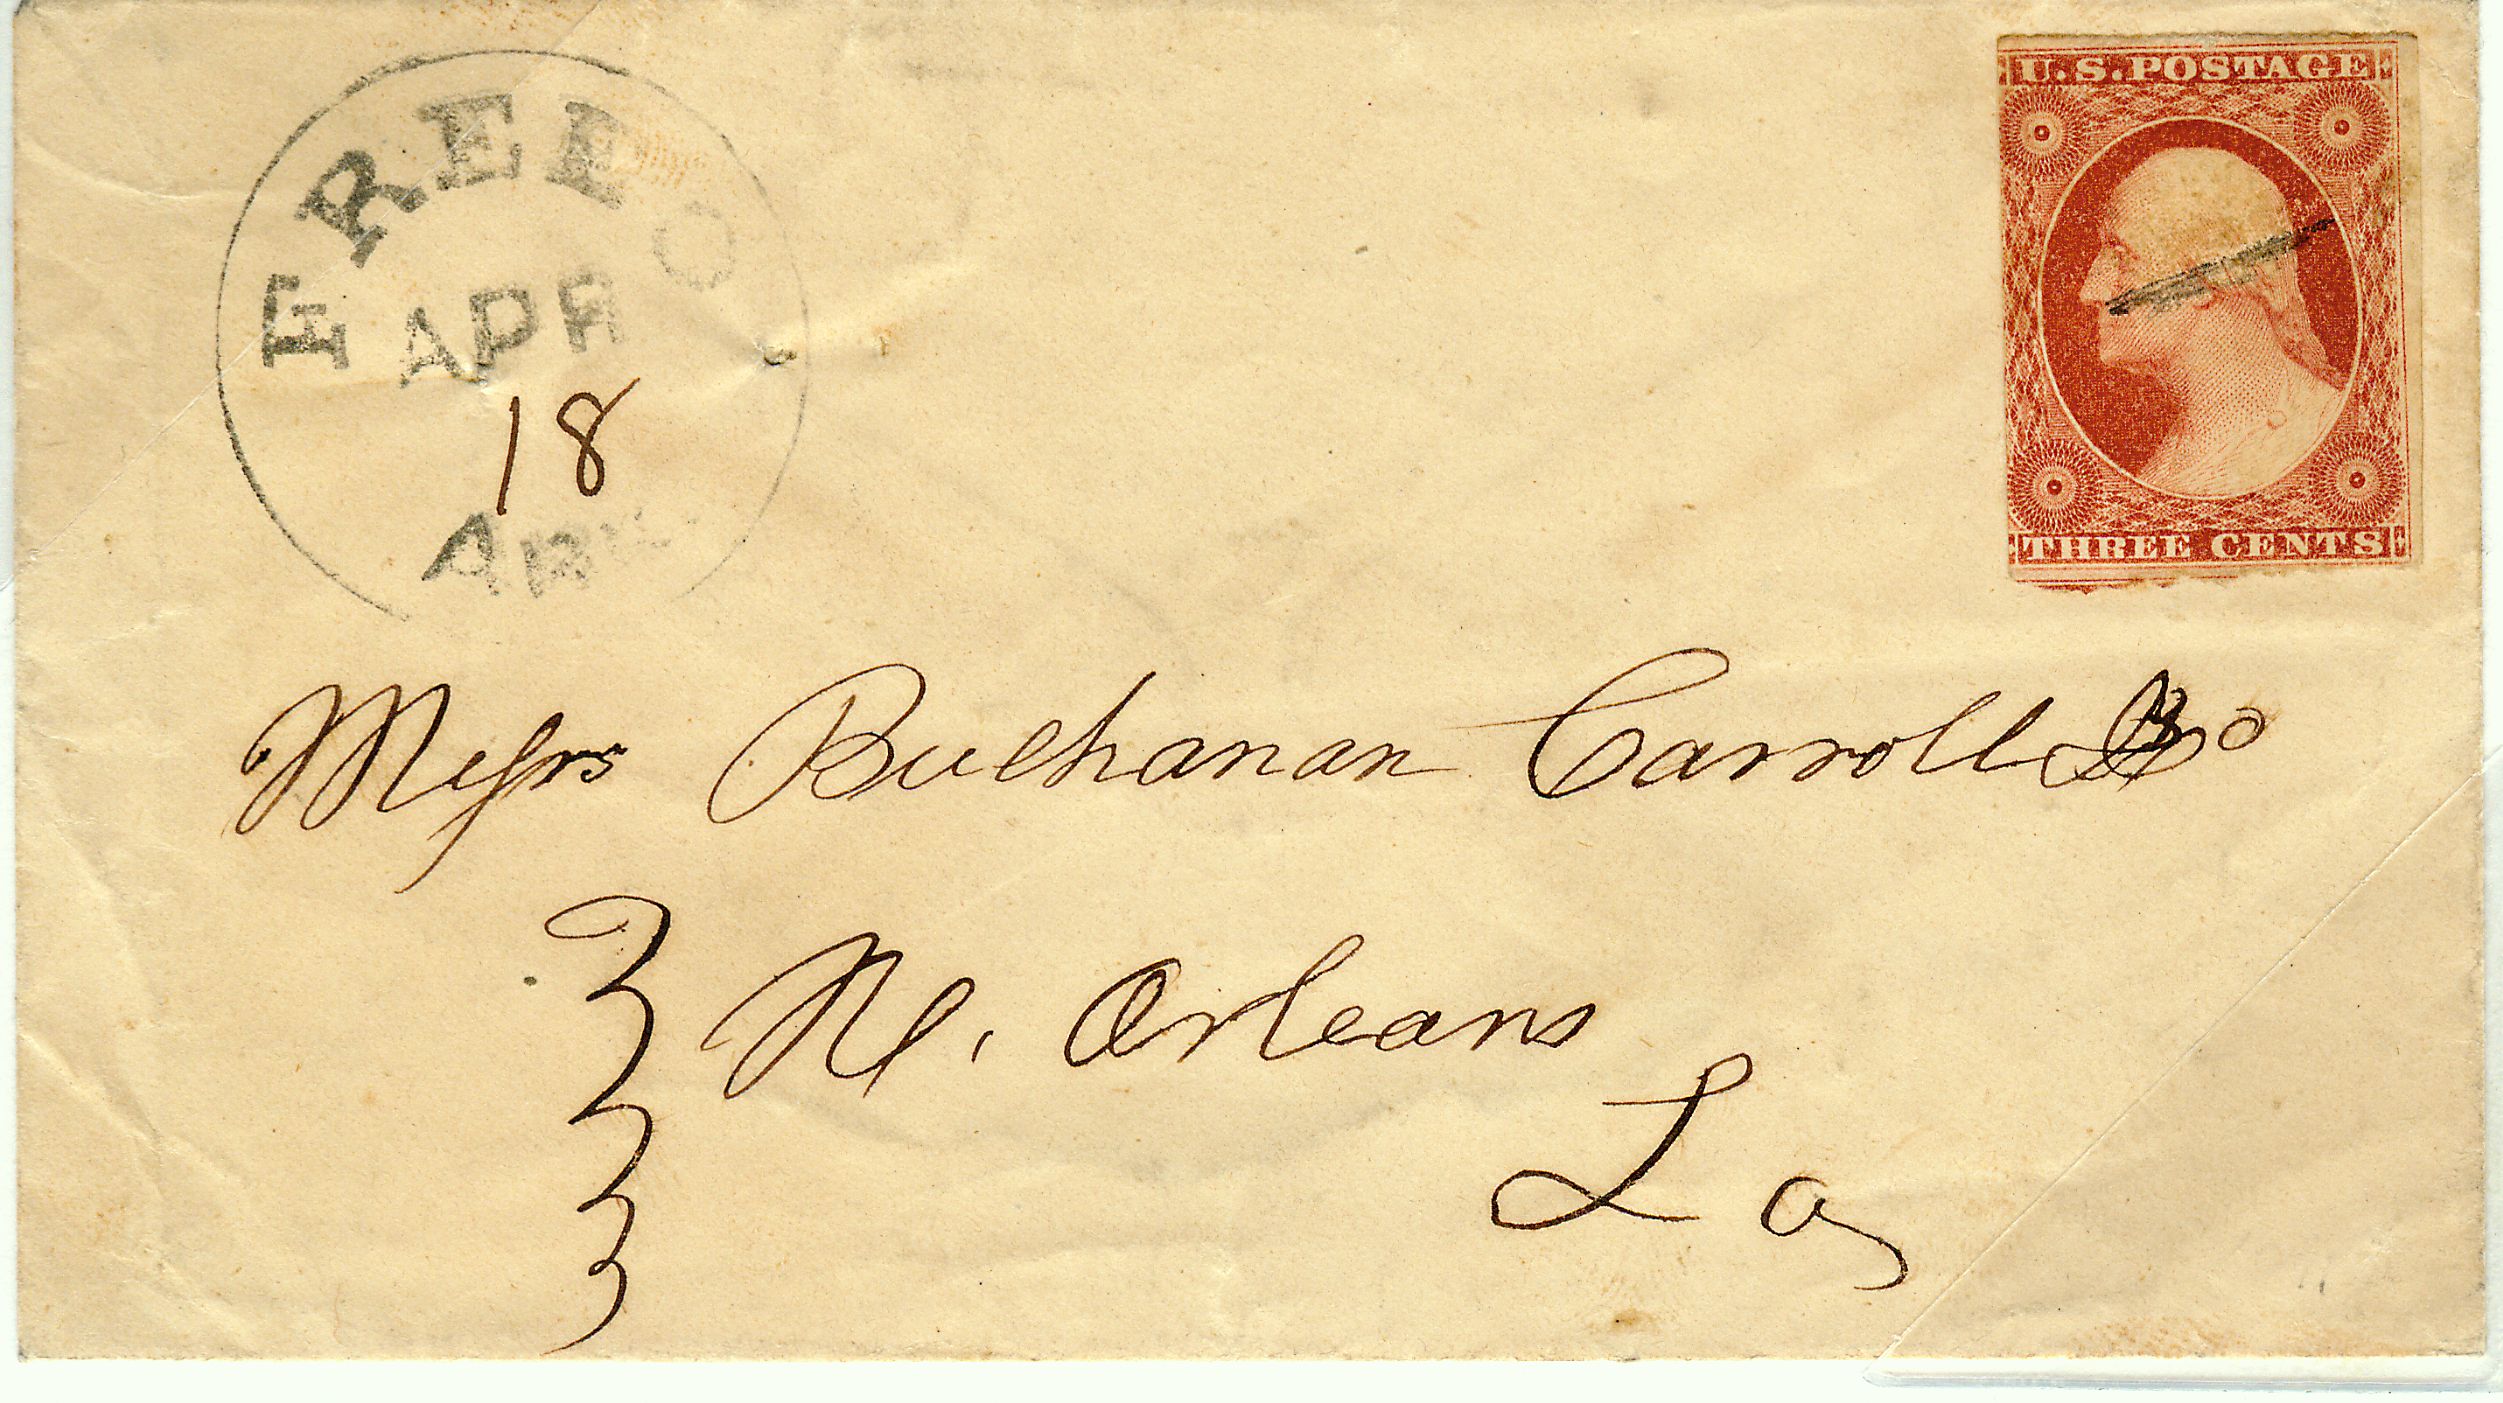 U.S.POSTAGE
THREE CENTS
FREEO
APR
18
ARK.
Messrs Buchanan Carroll & Co
N. Orleans
La